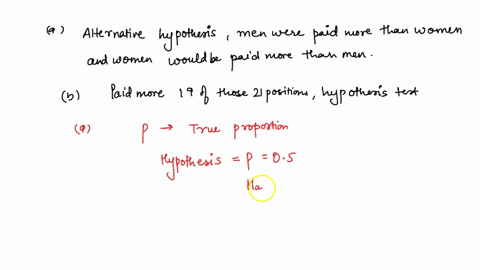 (a) Alternative hypothesis, men were paid more than women
and women would be paid more than men.
(b) Paid more 19 of those 21 positions, hypothesis test
(a) p → True proportion
Hypothesis = p = 0.5
Ha